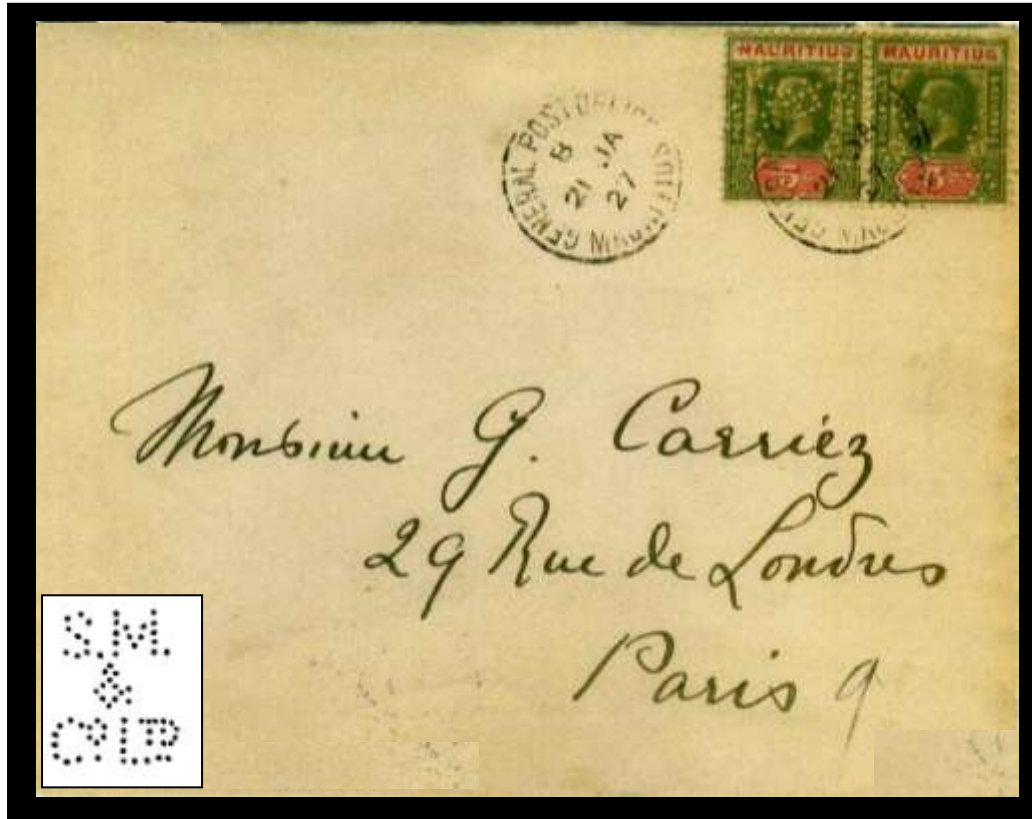 MAURITIUS MAURITIUS
GENERAL POST OFFICE MAURITIUS
B
21 JA
27
Monsieur G. Carriez
29 Rue de Londres
Paris 9
S.M.
&
Co LTD